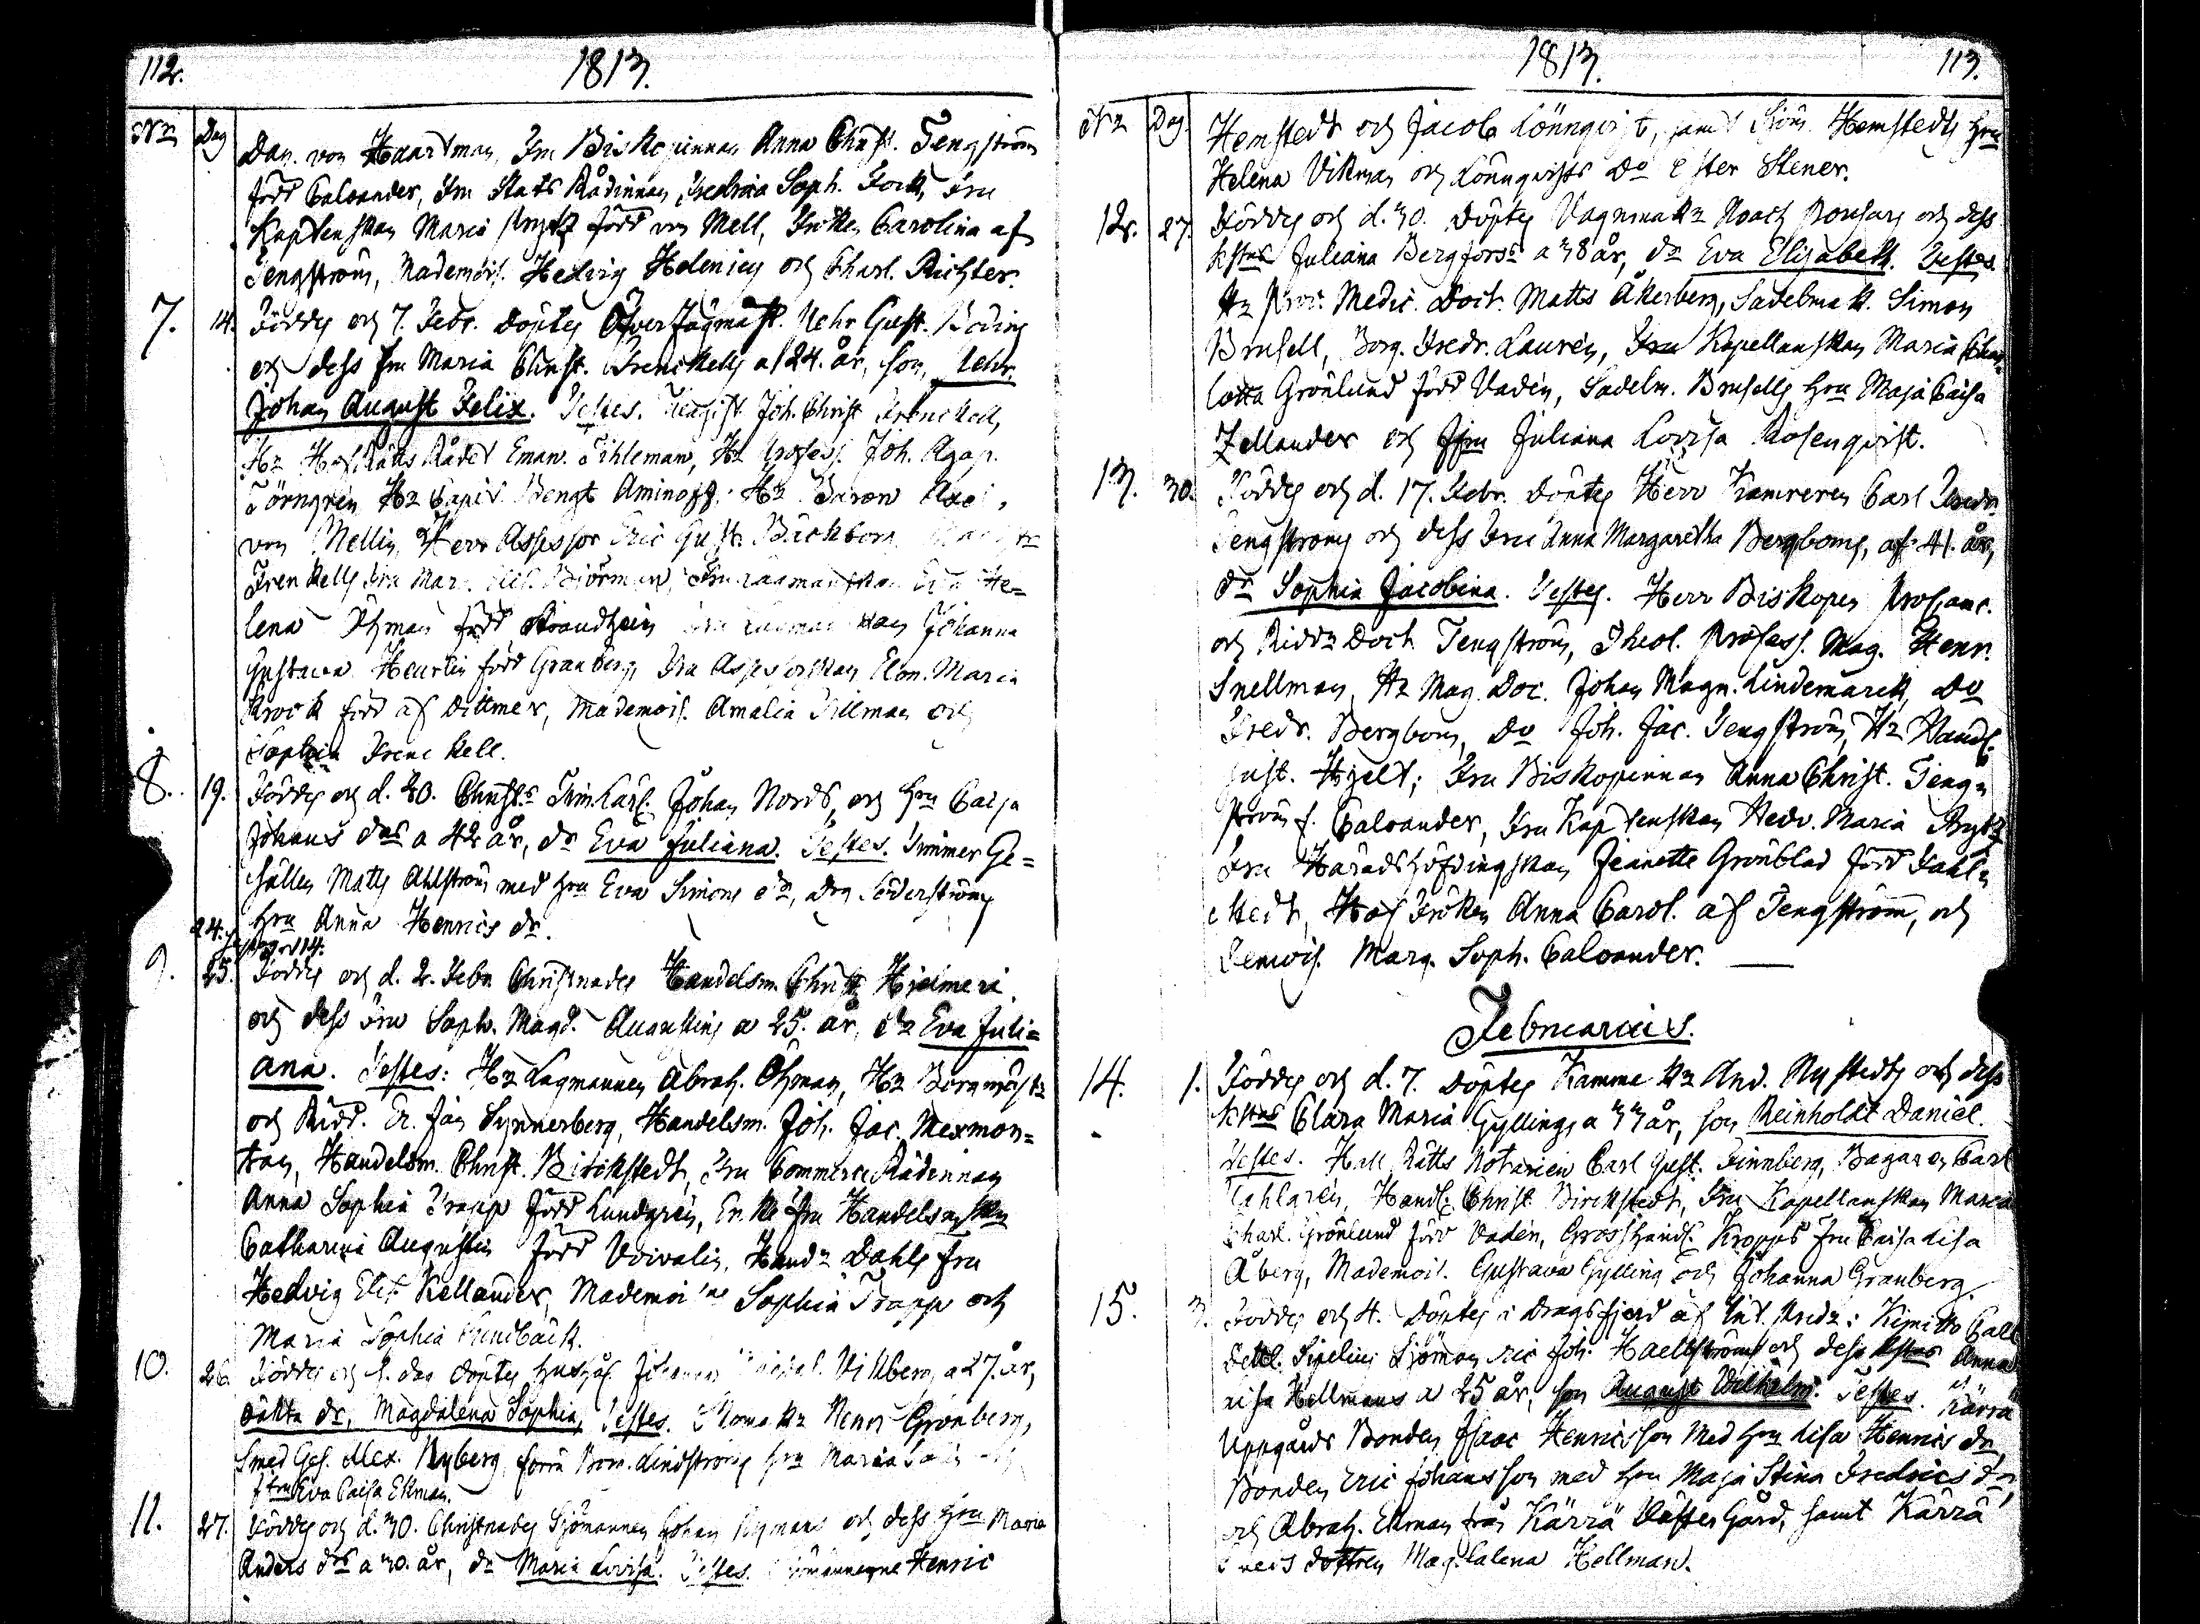 112.
1813.
Nr Dag
Dan. von Haartman, Fru Biskopinnan Anna Christ. Tengström
född Caloander, Fru Stats Rådinnan Fredrica Soph. Fock, Fru
Kaptenskan Maria född von Mell, Fröken Carolina af
Tengström, Mademois. Hedvig Helenius och Charl. Richter.
7. 14. Föddes och 7. Febr. döptes Öfver Jägmäst. Gust. Boding
och dess fru Maria Christ. Frenckells a 24. år, son,
Johan August Felix. Testes. Joh. Christ Frenckell,
Hr HofRätts Rådet Eman. Hr Profess. Joh. Agap.
Törngren Hr Capit. Bengt Aminoff, Hr Baron
von Mellin, Herr Assessor Eric Gust. Bäckbom
Frenkells Fru Mar. Björman, Eva He=
lena Öhman född Johanna
Gustava Heurlin född Granberg, Fru Assessorskan Elon. Maria
Krook född af Dittmer, Mademois. Amalia Tillman och
Sophia Frenckell.
8. 19. Föddes och d. 30. Christs Timkarl. Johan Nords, och Hru Caisa
Johans dotr a 42 år, dr Eva Juliana. Testes. Timmer Ge=
sällen Matts Ahlström med hru Eva Simons dr, Söderströms
hru Anna Henrics dr.
24.
9. 25. Föddes och d. 2. Febr. Christnades Handelsm. Christ. Hjelmeri
och dess Fru Soph. Magd. Augustins a 25. år, dr Eva Juli=
ana. Testes: Hr Lagmannen Abrah. Öhman, Hr Borgmäst.
och Ridd. Er. Jan Synnerberg, Handelsm. Joh. Jac. Mexmon=
tan, Handelsm. Christ. Birckstedt, Fru Commerce Rådinnan
Anna Sophia Trapp född Lundgren, Enke fru Handelsm
Catharina Augustin född Voivalin, Hand. Dahls Fru
Hedvig Elis. Kellander, Mademois Sophia Trapp och
Maria Sophia
10. 26. Föddes och s. dag döptes Vikberg a 27. år,
oäkta dr, Magdalena Sophia, Testes. Henr Grönberg,
Smed Ges. Alex. Nyberg, Lindströms hru Maria
Jfru Eva Caisa Ekman.
11. 27. Föddes och d. 30. Christnades Sjömannen Johan Nymans och dess Hru Maria
Anders dotr a 30. år, dr Maria Lovisa. Testes. Sjömännerne Henric
1813.
113.
Nr Dag.
Hemstedt och Jacob Lönnqvist, samt Sjöm. Hemstedts hru
Helena Vikman och Lönnqvists Do Ester Stener.
12. 27. Föddes och d. 30. döptes Vagnmakr Noach och dess
hstru Juliana Bergfors a 38 år, dr Eva Elisabeth. Testes
Hr Medic. Doct. Matts Åkerberg, Sadelmak. Simon
Brusell, Borg. Fredr. Lauren, Fru Kapellanskan Maria Char
lotta Grönlund född Vaden, Sadelm. Brusells Hru Maja Caisa
Zellander och Jfru Juliana Lovisa Rosenqvist.
13. 30. Föddes och d. 17. Febr. döptes Herr Kamreren Carl Fredr.
Tengströms och dess Fru Anna Margaretha Bergboms, af 41. år,
dr Sophia Jacobina. Testes. Herr Biskopen
och Riddr Doct. Tengström, Theol. Profess. Mag. Henr.
Snellman, Hr Mag. Doc. Johan Magn. Lindemarck, Do
Fredr. Bergbom, Do Joh. Jac. Tengström, Hr Handl.
Gust. Hjelt; Fru Biskopinnan Anna Christ. Teng=
ström f. Caloander, Fru Kaptenskan Hedv. Maria
Fru Häradshöfdingskan Jeanette Grönblad född Fahl=
stedt, Hof Fröken Anna Carol. af Tengström, och
Demois. Marg. Soph. Caloander.
Februarius.
14. 1. Föddes och d. 7. döptes Kammakr And. Nystedts och dess
hstrus Clara Maria Gyllings a 33 år, son Reinholdt Daniel.
Testes. Rätts Notarien Carl Gust. Finnberg, Bagaren Carl
Handl. Christ Birckstedt, Fru Kapellanskan Maria
Charl. Grönlund född Vaden, Grosshandl. Kropps fru Caisa Lisa
Åberg, Mademois. Gustava Gylling och Johanna Granberg.
15. 3. Föddes och 4. döptes i Dragsfjerd af Kimitto
Sipelius Sjöman Eric Joh. Haellströms och dess hstru Anna
Lisa Hellmans a 25 år, son August Wilhelm. Testes. Kärra
Uppgårds Bonden Isaac Henricsson med hru Lisa Henrics dr,
Bonden Eric Johansson med hru Maja Stina Fredrics dr,
och Abrah. Ekman från Kärra Västergård, samt Kärra
dottren Magdalena Hellman.